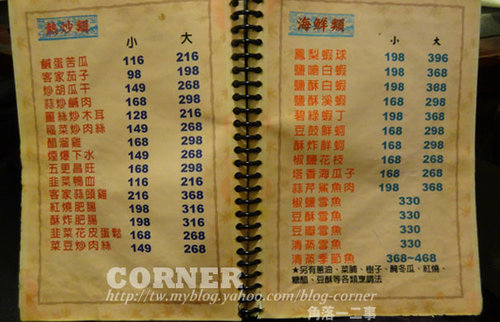 熱炒類
小 大
鹹蛋苦瓜 116 216
客家茄子 98 198
炒胡瓜干 149 268
蒜炒鹹肉 168 298
薑絲炒木耳 128 216
福菜炒肉絲 149 268
醋溜雞 168 298
爆下水 149 268
五更昌旺 168 298
韭菜鴨血 116 216
客家蒜頭雞 216 368
紅燒肥腸 198 316
酥炸肥腸 198 316
韭菜花皮蛋鬆 168 268
菜豆炒肉絲 149 268
海鮮類
小 大
鳳梨蝦球 198 396
鹽嗆白蝦 198 368
鹽酥白蝦 198 368
鹽酥溪蝦 168 298
碧綠蝦丁 198 368
豆鼓鮮蚵 168 298
酥炸鮮蚵 168 298
椒鹽花枝 168 298
塔香海瓜子 168 268
蒜芹鯊魚肉 198 368
椒鹽雪魚 330
豆酥雪魚 330
豆瓣雪魚 330
清蒸雪魚 330
清蒸季節魚 368~468
★另有蔥油、菜脯、樹子、醃冬瓜、紅燒、
糖醋、豆酥等各類烹調法
CORNER
http://tw.myblog.yahoo.com/blog-corner
角落一二事